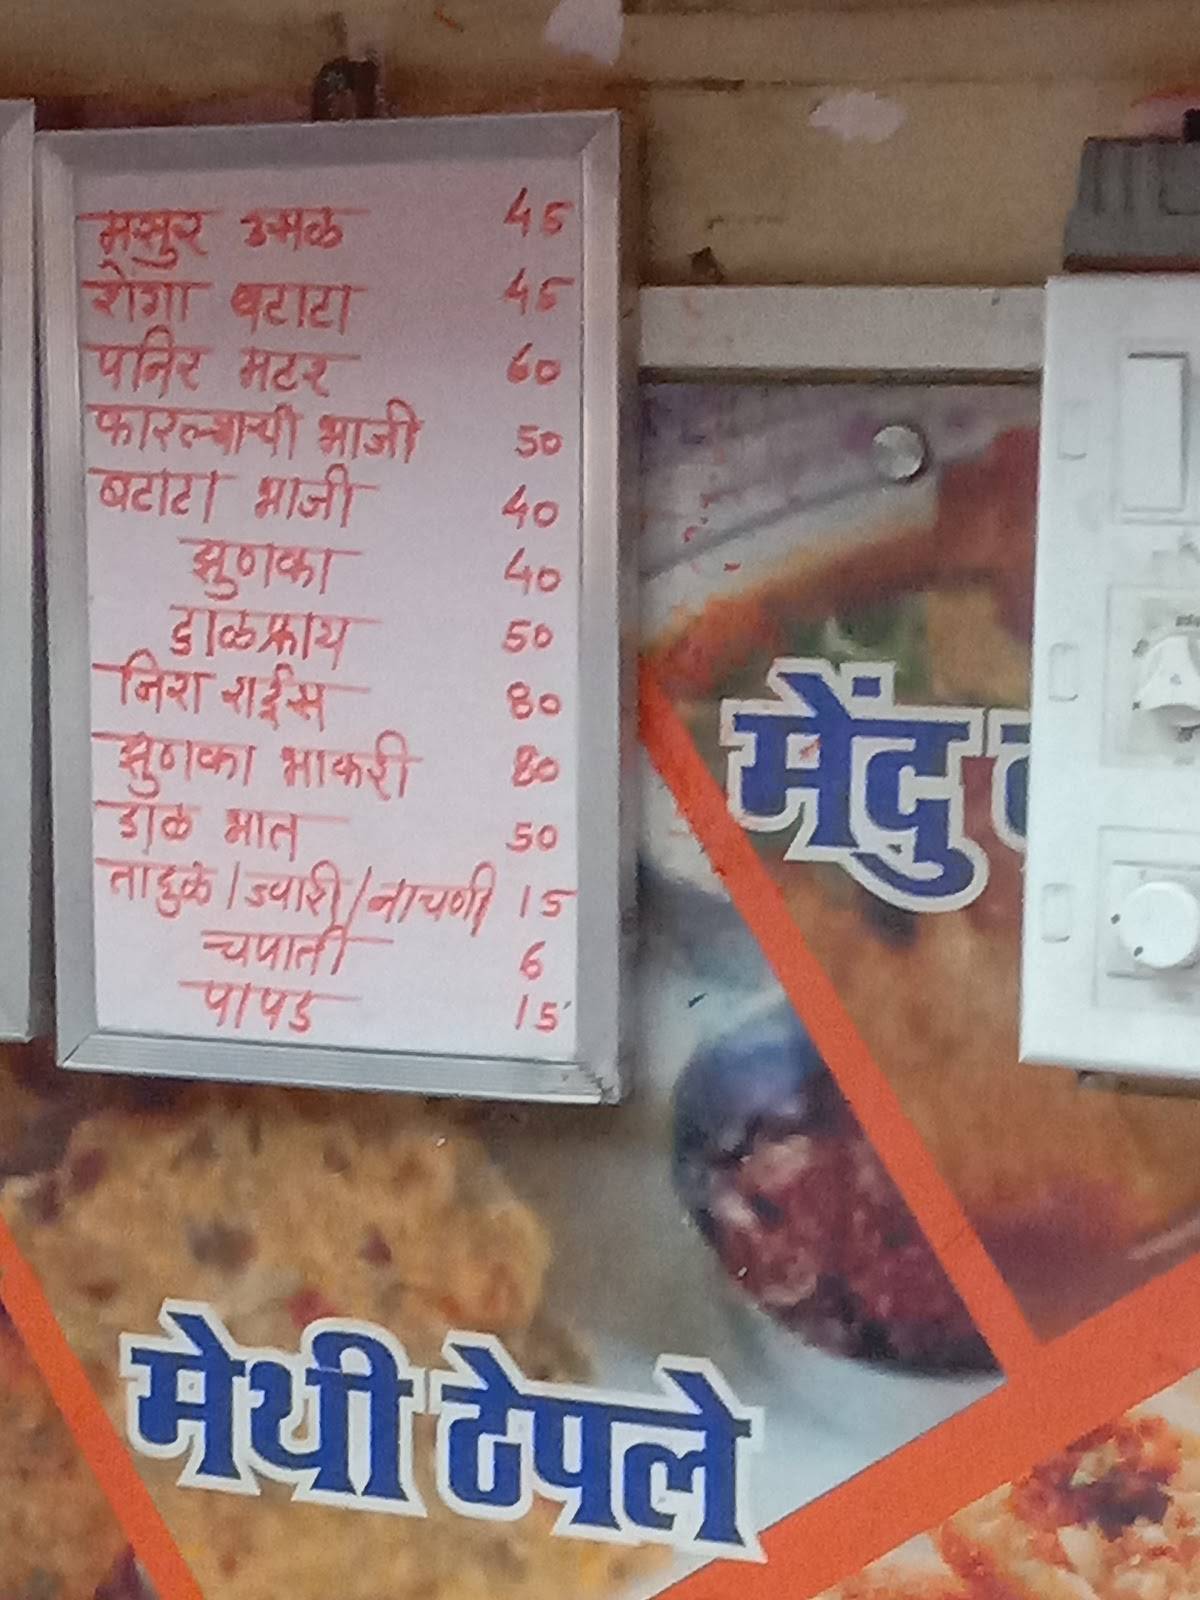 मसुर उसळ 45
शेंगा बटाटा 45
पनिर मटर 60
कारल्याची भाजी 50
बटाटा भाजी 40
झुणका 40
डाळफ्राय 50
जिरा राईस 80
झुणका भाकरी 80
डाळ भात 50
तादुळ / ज्वारी / नाचणी 15
चपाती 6
पापड 15
मेंदु
मेथी ठेपले